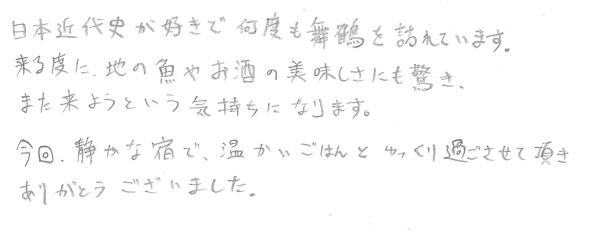 日本近代史が好きで何度も舞鶴を訪れています。
来る度に、地の魚やお酒の美味しさにも驚き、
また来ようという気持ちになります。
今回、静かな宿で、温かいごはんとゆっくり過ごさせて頂き
ありがとうございました。